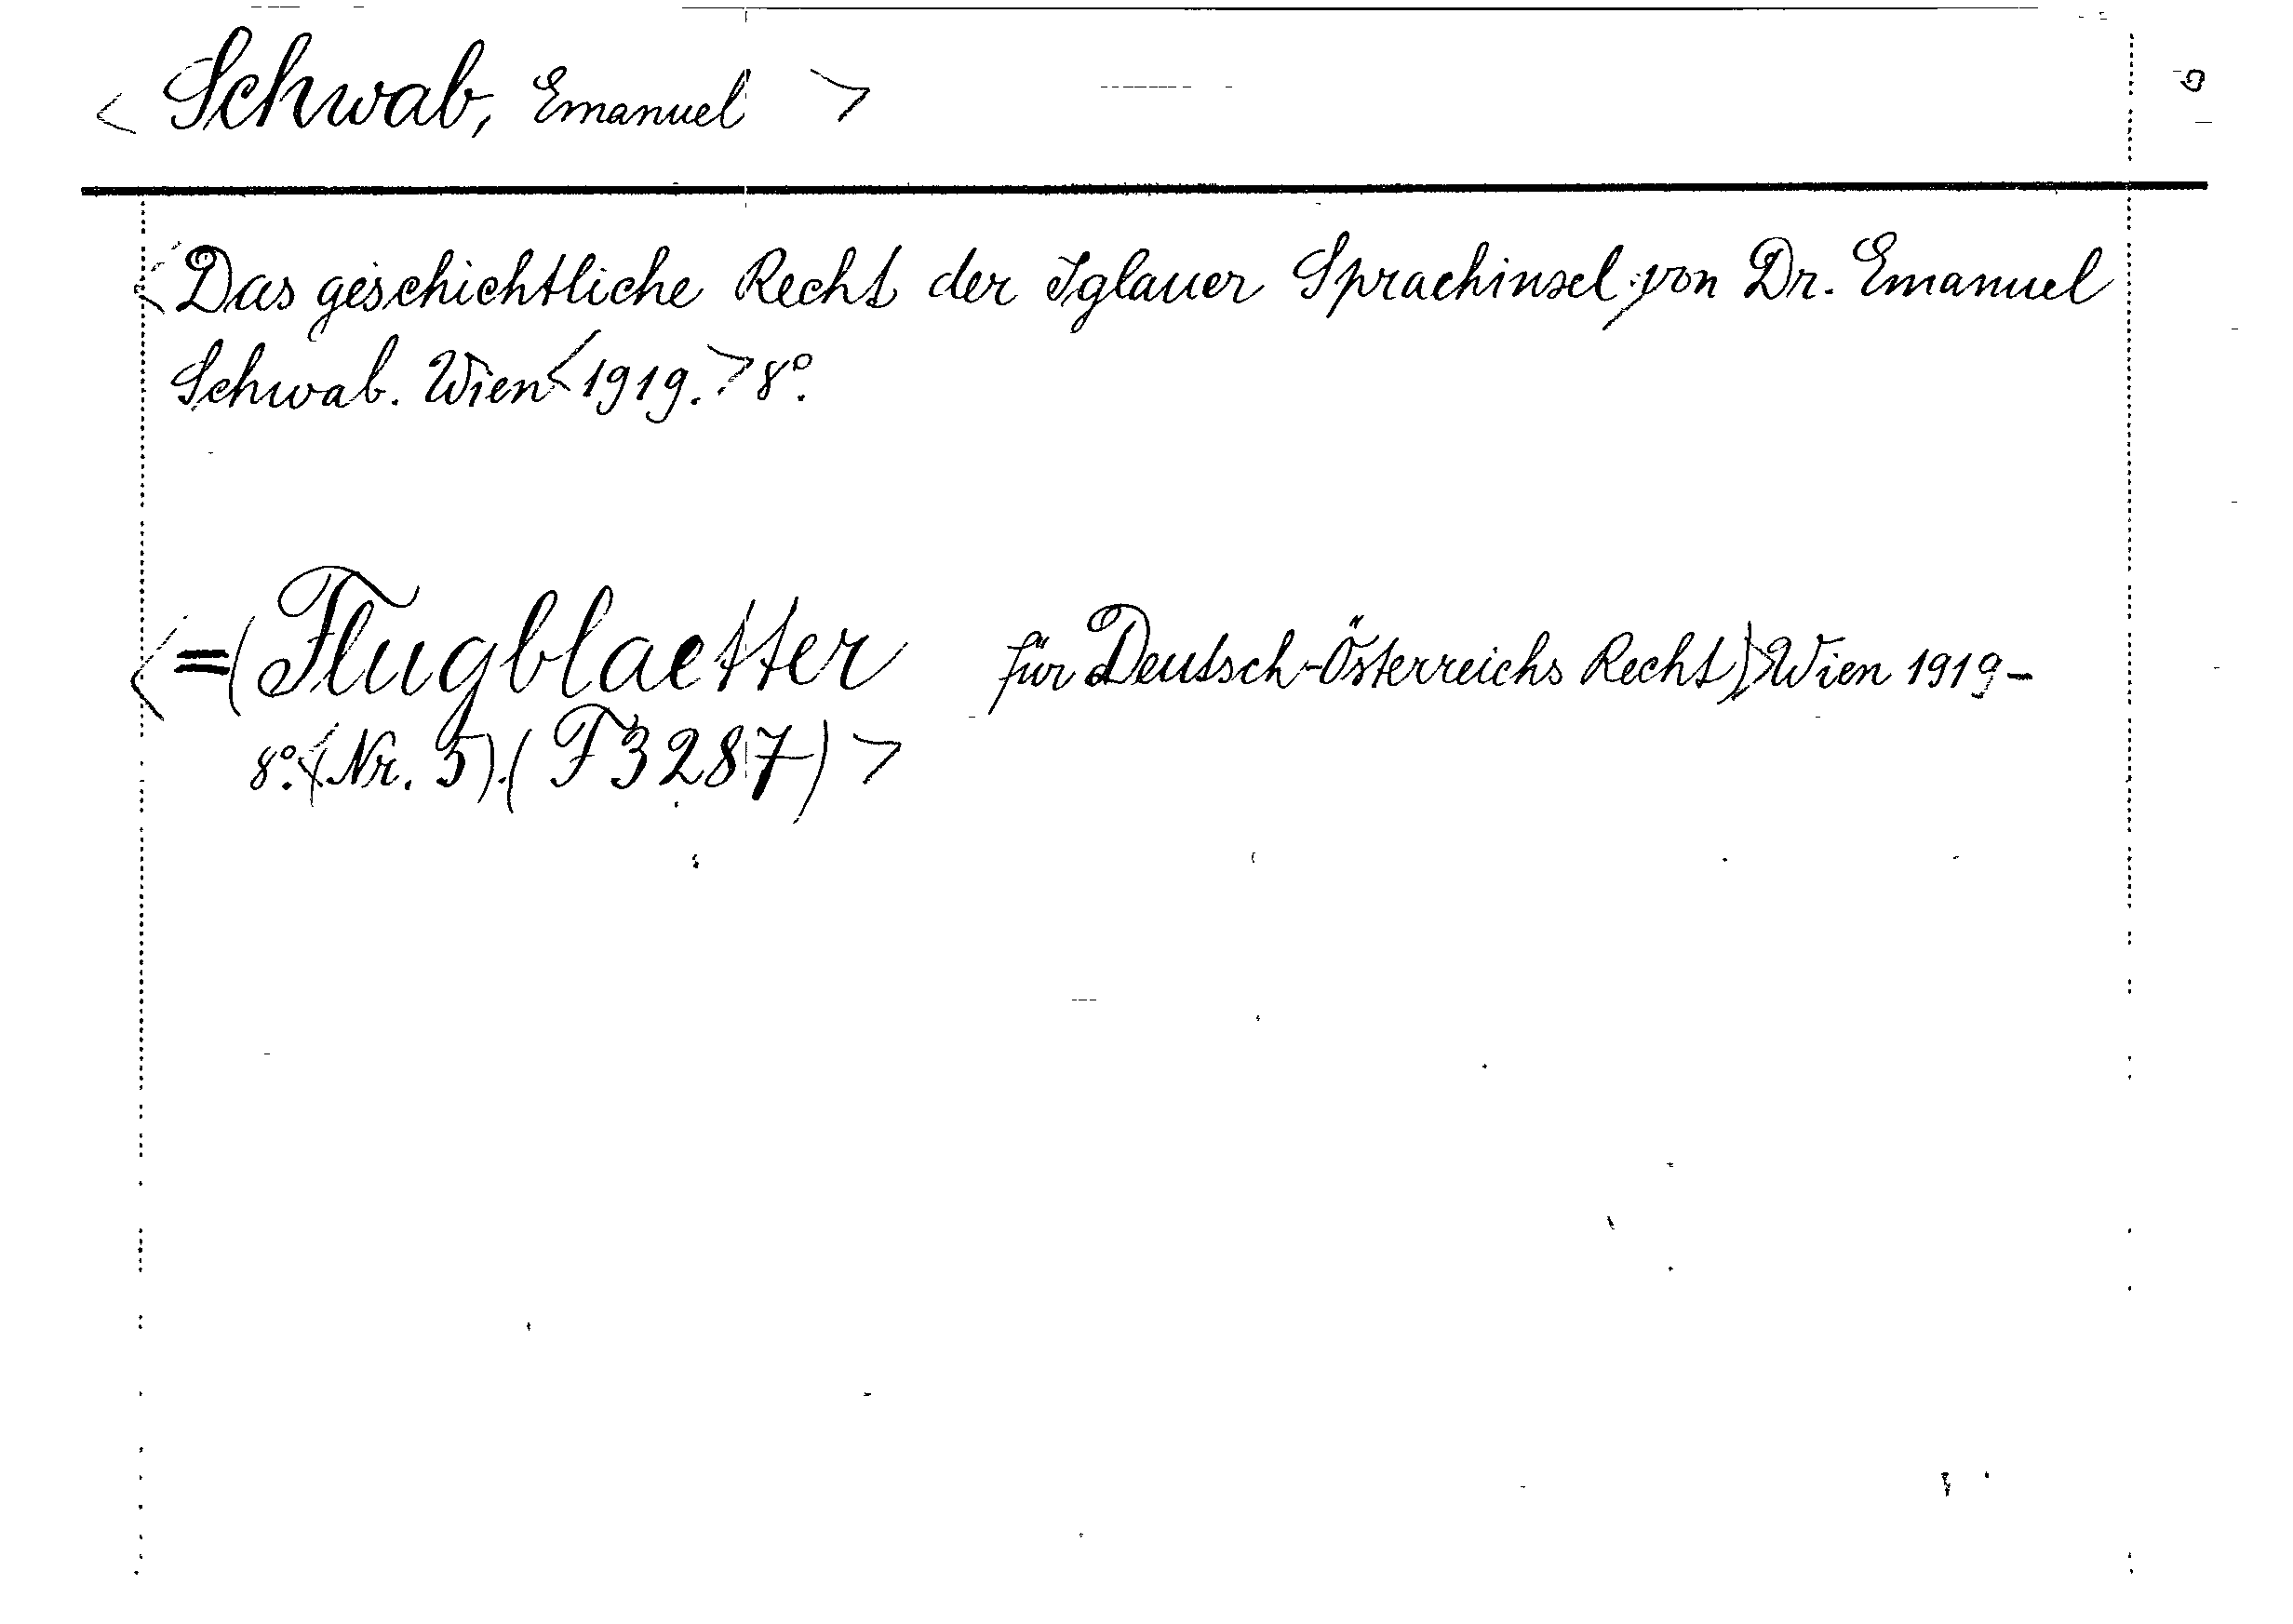 < Schwab, Emanuel >
<Das geschichtliche Recht der Iglauer Sprachinsel von Dr. Emanuel
Schwab. Wien <1919.> 8°.
<=(Flugblaetter für Deutsch-Österreichs Recht)> Wien 1919-
8°. <(Nr. 5).(F3287)>